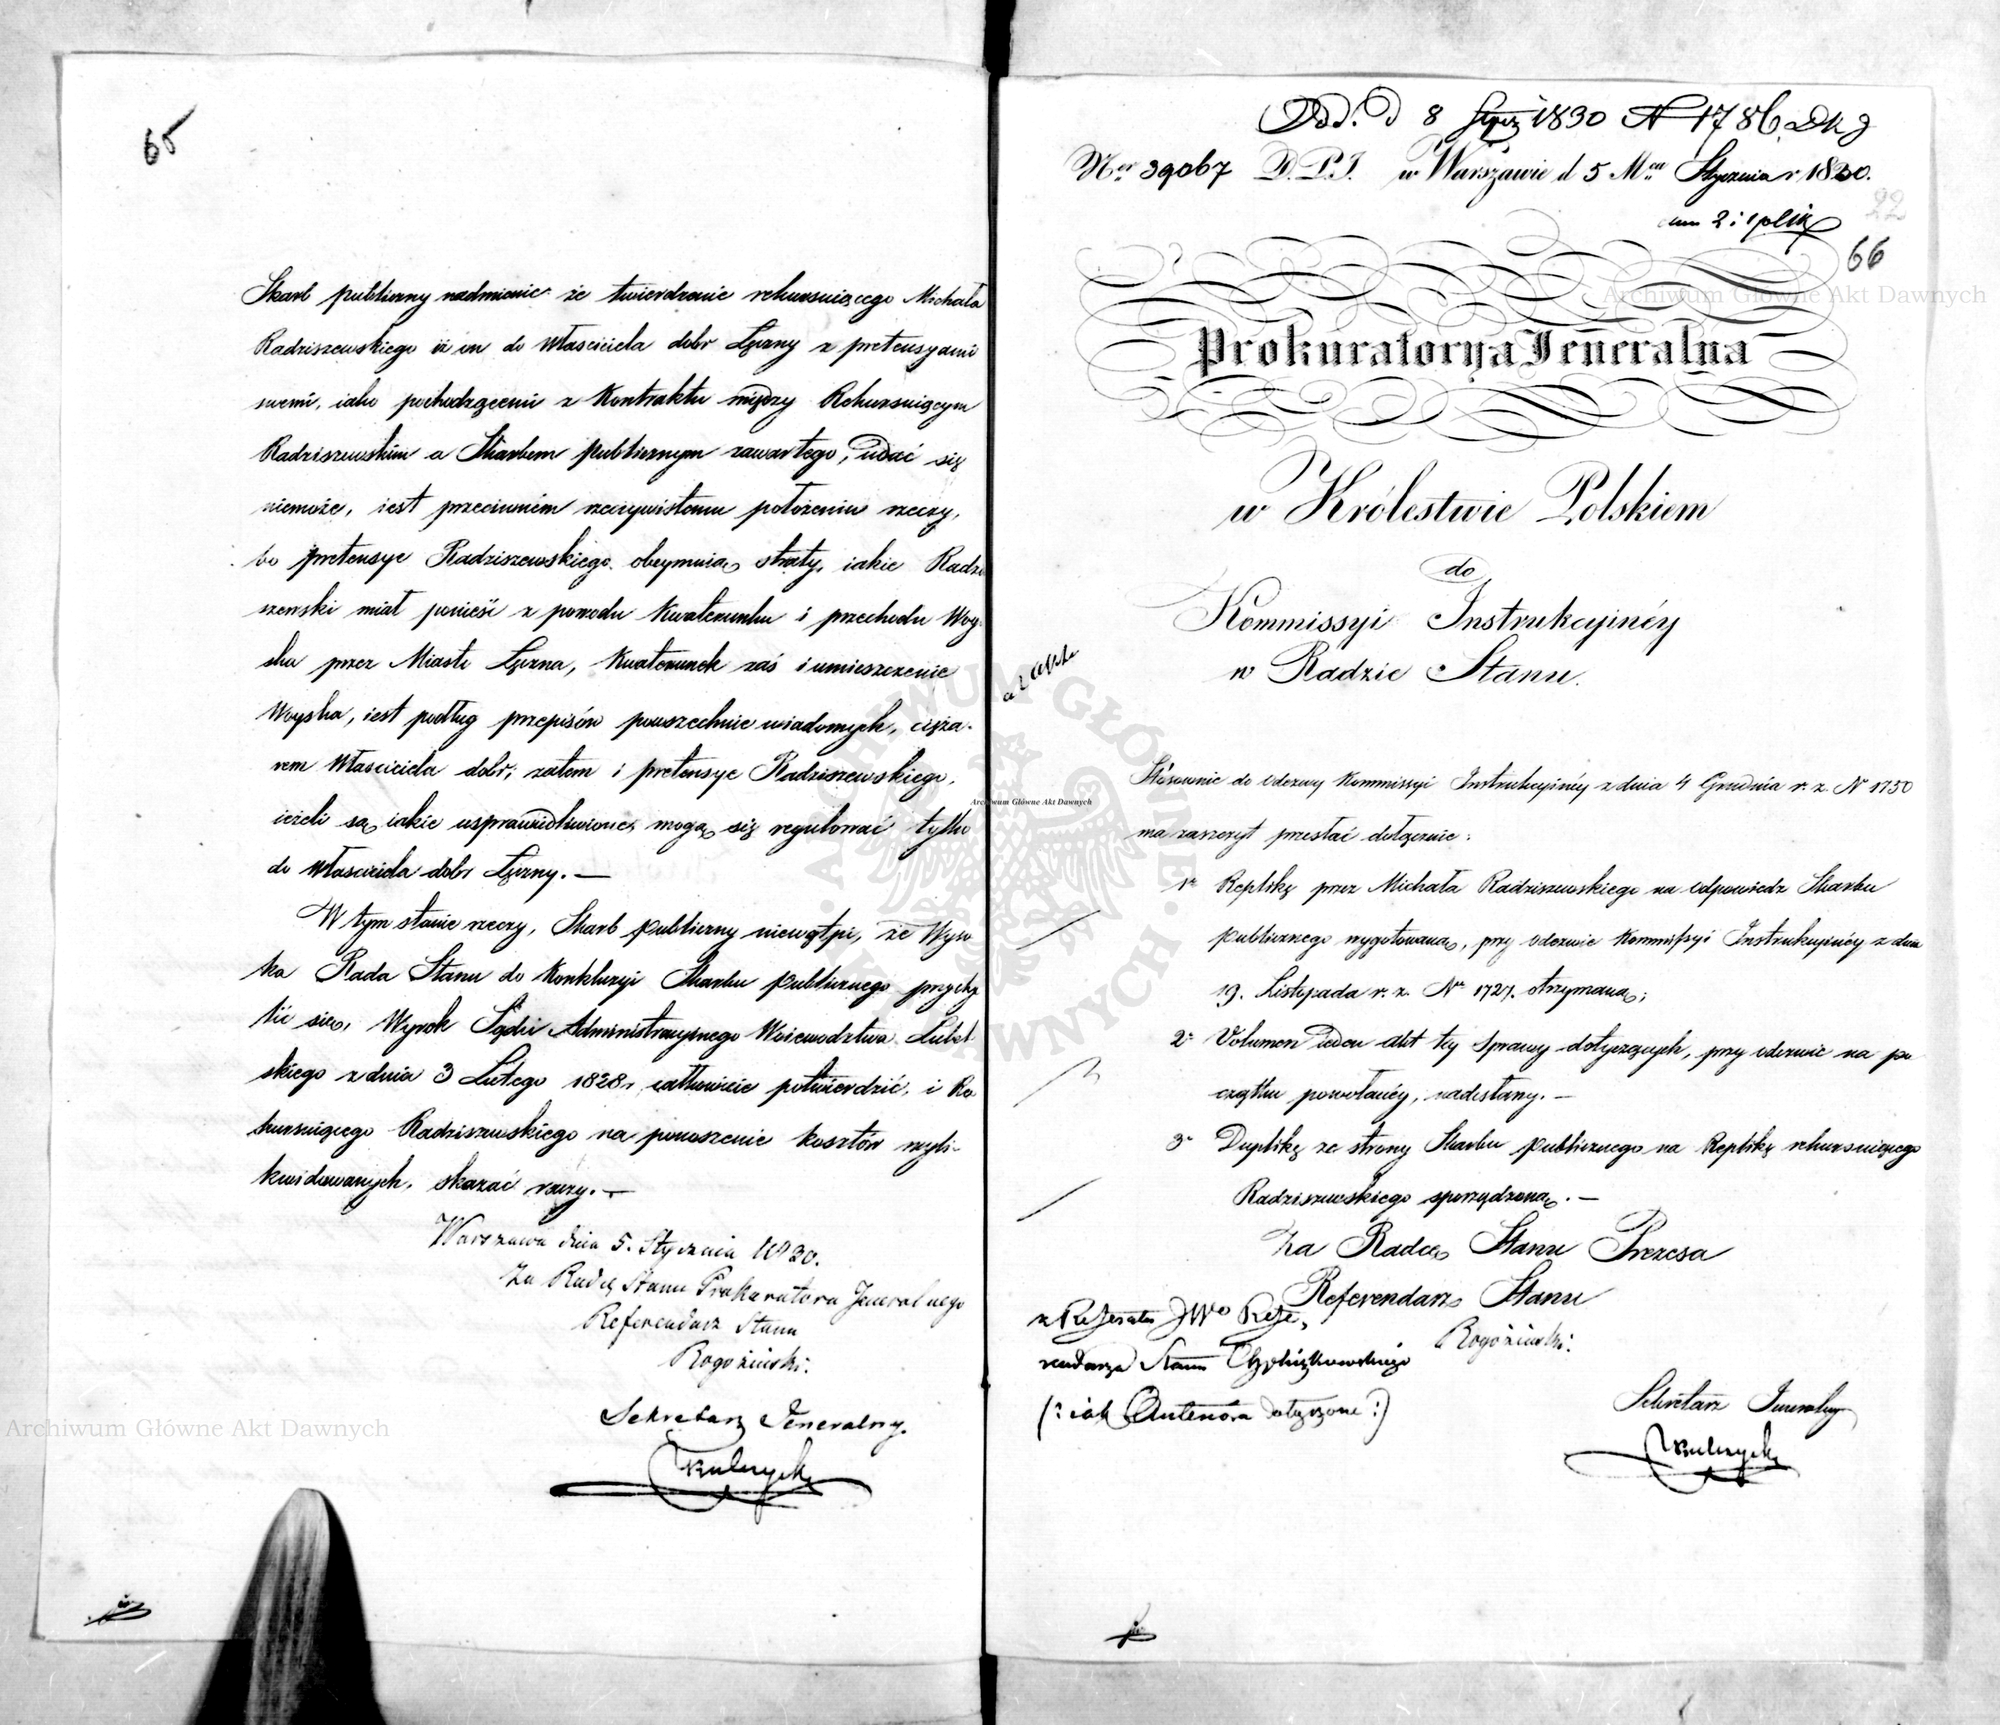 65
Skarb publiczny nadmienia że twierdzenie rekursuiącego Michała
Radziszewskiego iż on do Własciciela dobr Łęczny z pretensyami
swemi, iako pochodzącemi z Kontraktu między Rekursuiącym
Radziszewskim a Skarbem publicznym zawartego, udać się
niemoże, iest przeciwném rzeczywistemu położeniu rzeczy,
bo pretensye Radziszewskiego obeymuią straty, iakie Radzi
szewski miał ponieść z powodu Kwaterunku i przechodu Woy-
ska przez Miasto Łęczna, Kwaterunek zaś i umieszczenie
Woyska, iest podług przepisów powszechnie wiadomych, cięża-
rem Własciciela dobr; zatem i pretensye Radziszewskiego,
ieżeli są iakie usprawiedliwione, mogą się regulować tylko
do Własciciela dobr Łęczny. —
W tym stanie rzeczy, Skarb publiczny niewątpi, że Wyso
ka Rada Stanu do Konkluzyi Skarbu publicznego przychy
lić się, Wyrok Sądu Administracyjnego Woiewodztwa Lubel
skiego z dnia 3 Lutego 1828 r. całkowicie potwierdzić, i Re-
kursuiącego Radziszewskiego na ponoszenie kosztów wyli-
kwidowanych, skazać raczy. —
Warszawa dnia 5. Stycznia 1830.
Za Radcę Stanu Prokuratora Jeneralnego
Referendarz Stanu
Rogoziński.
Sekretarz Jeneralny.
Kulczycki
Odd. d 8 Stycz 1830 N 1786
Ner 39067 D.P.J. w Warszawie d 5 Mca Stycznia r 1830.
2 i 1 plik
22
66
Prokuratorya Jeneralna
w Królestwie Polskiem
do
Kommissyi Instrukcyinéy
w Radzie Stanu.
Stosownie do odezwy Kommissyi Instrukcyinéy z dnia 4 Grudnia r. z. N 1750
ma zaszczyt przesłać dołącznie:
1e Replikę przez Michała Radziszewskiego na odpowiedz Skarbu
publicznego wygotowaną, przy odezwie Kommissyi Instrukcyinéy z dnia
19. Listopada r. z. Nr 1727. otrzymaną;
2e Volumen ieden akt téy sprawy dotyczących, przy odezwie na po
czątku powołanéy, nadesłany. —
3e Duplikę ze strony Skarbu publicznego na Replikę rekursuiącego
Radziszewskiego sporządzoną. —
Za Radcę Stanu Prezesa
Referendarz Stanu
Rogoziński.
z Referatu JWo Refe,
rendarza Stanu
(: iak dotyczone :)
Sekretarz Jeneralny
Kulczycki
Archiwum Główne Akt Dawnych
Archiwum Główne Akt Dawnych
Archiwum Główne Akt Dawnych
ARCHIWUM GŁÓWNE AKT DAWNYCH